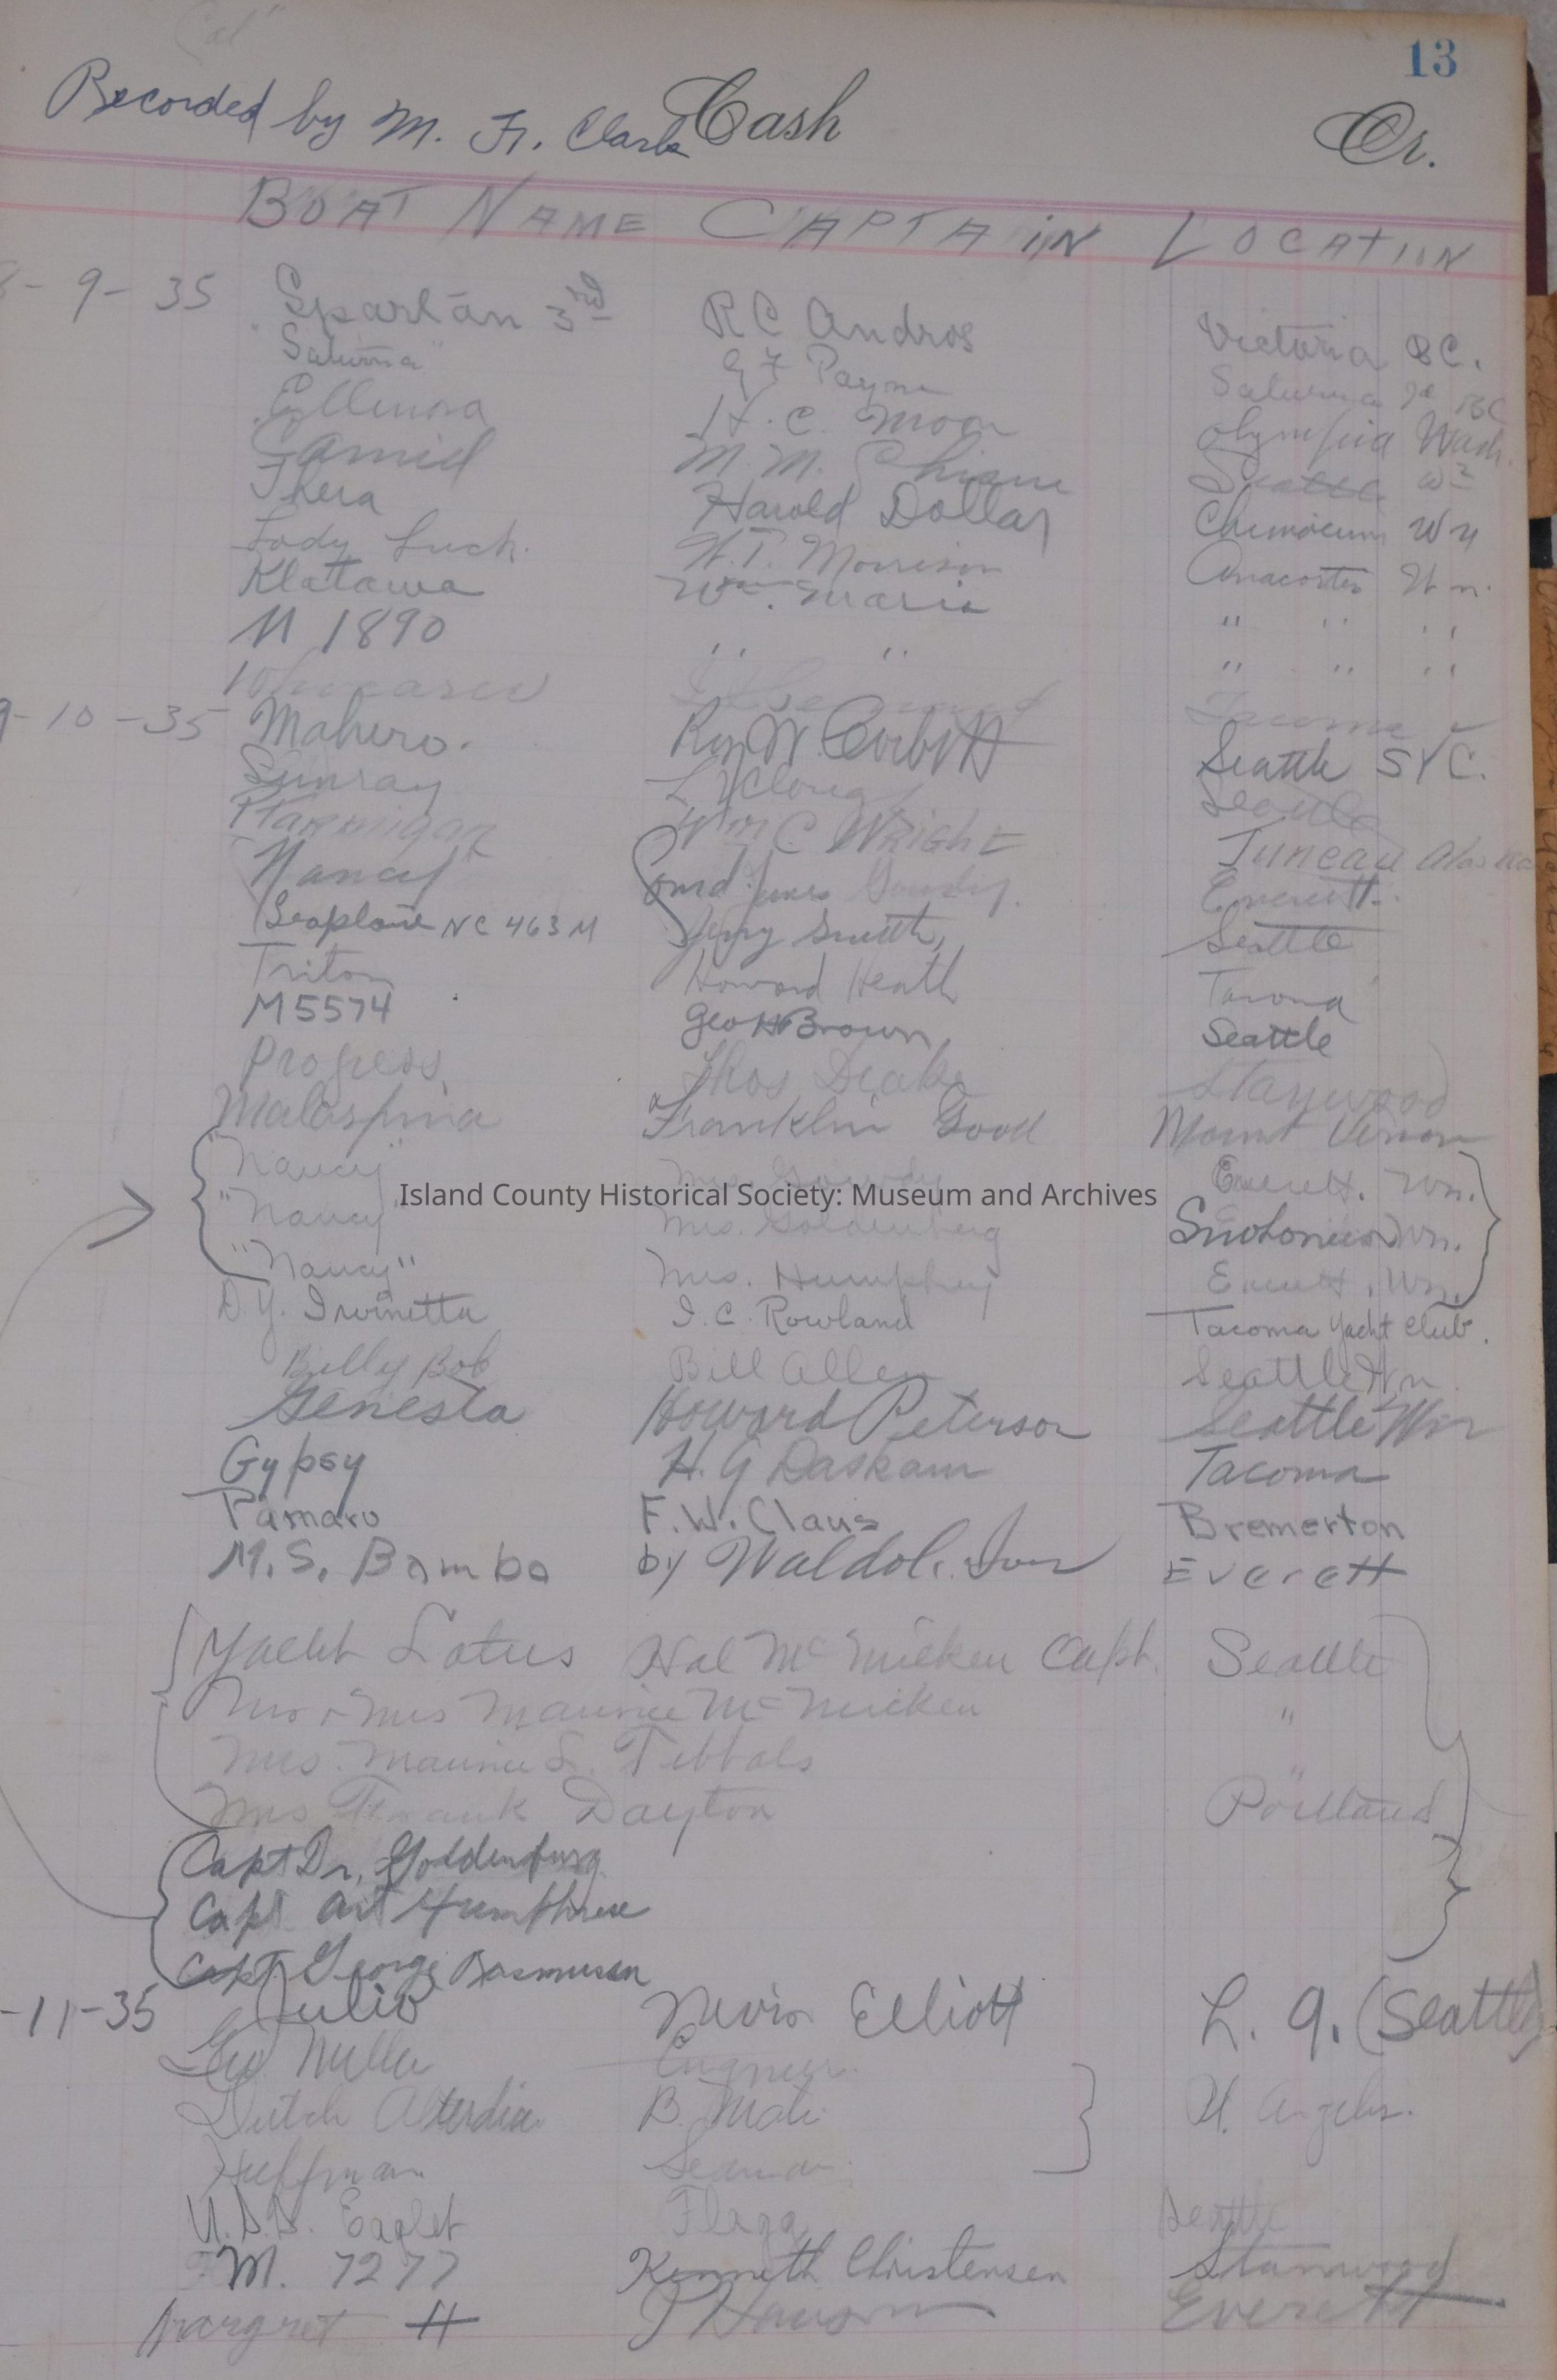 13
Recorded by M. Fr. Clark Cash Cr.
BOAT NAME CAPTAIN LOCATION
8-9-35 Spartan 3rd RC Andros Victoria BC.
"Saturna" G F Payne Saturna Is BC
Ellenora H. C. Moon Olympia Wash.
Camid M. M. Seattle Wn
Thera Harold Dollar Chimacum Wn
Lady Luck. W. T. Morrison Anacortes Wn.
Klatawa Wm. Maris " " "
N 1890 " " " " "
Tacoma
9-10-35 Mahero. Roy W. Corbett Seattle SYC.
Sunray L Clough Seattle
Ptarmigan Wm C Wright Juneau Alaska
Nancy James Gowdy. Everett.
Seaplane NC 463 M Jerry Smith, Seattle
Triton Howard Heath Tacoma
M5574 Geo H Brown, Seattle
Progress Thos Deake Stanwood
Malaspina Franklin Good Mount Vernon
"Nancy" Mrs. Gowdy Everett. Wn.
"Nancy" Mrs. Goldenberg Snohomish Wn.
"Nancy" Mrs. Humphrey Everett, Wn.
D.Y. Irvinetta I. C. Rowland Tacoma Yacht Club.
Billy Bob Bill Allen Seattle Wn
Genesta Howard Peterson Seattle Wn
Gypsy H. G Daskam Tacoma
Tamaro F. W. Claus Bremerton
M. S. Bambo by Waldo Everett
Yacht Lotus Hal McMicken Capt. Seattle
Mr & Mrs Maurice McMicken "
Mrs. Maurice S. Tibbals "
Mrs Frank Dayton Portland
Capt Dr. Goldenburg
Capt Art Humphrese
Capt George Rasmusen
-11-35 Julio Nevin Elliott L. A. (Seattle)
Miller Engineer
Island County Historical Society: Museum and Archives
Dutch B. Mate Angeles.
Huffman Seaman
U.S.S. Eaglet Flaga Seattle
M. 7277 Kenneth Christensen Stanwood
Margret H Everett